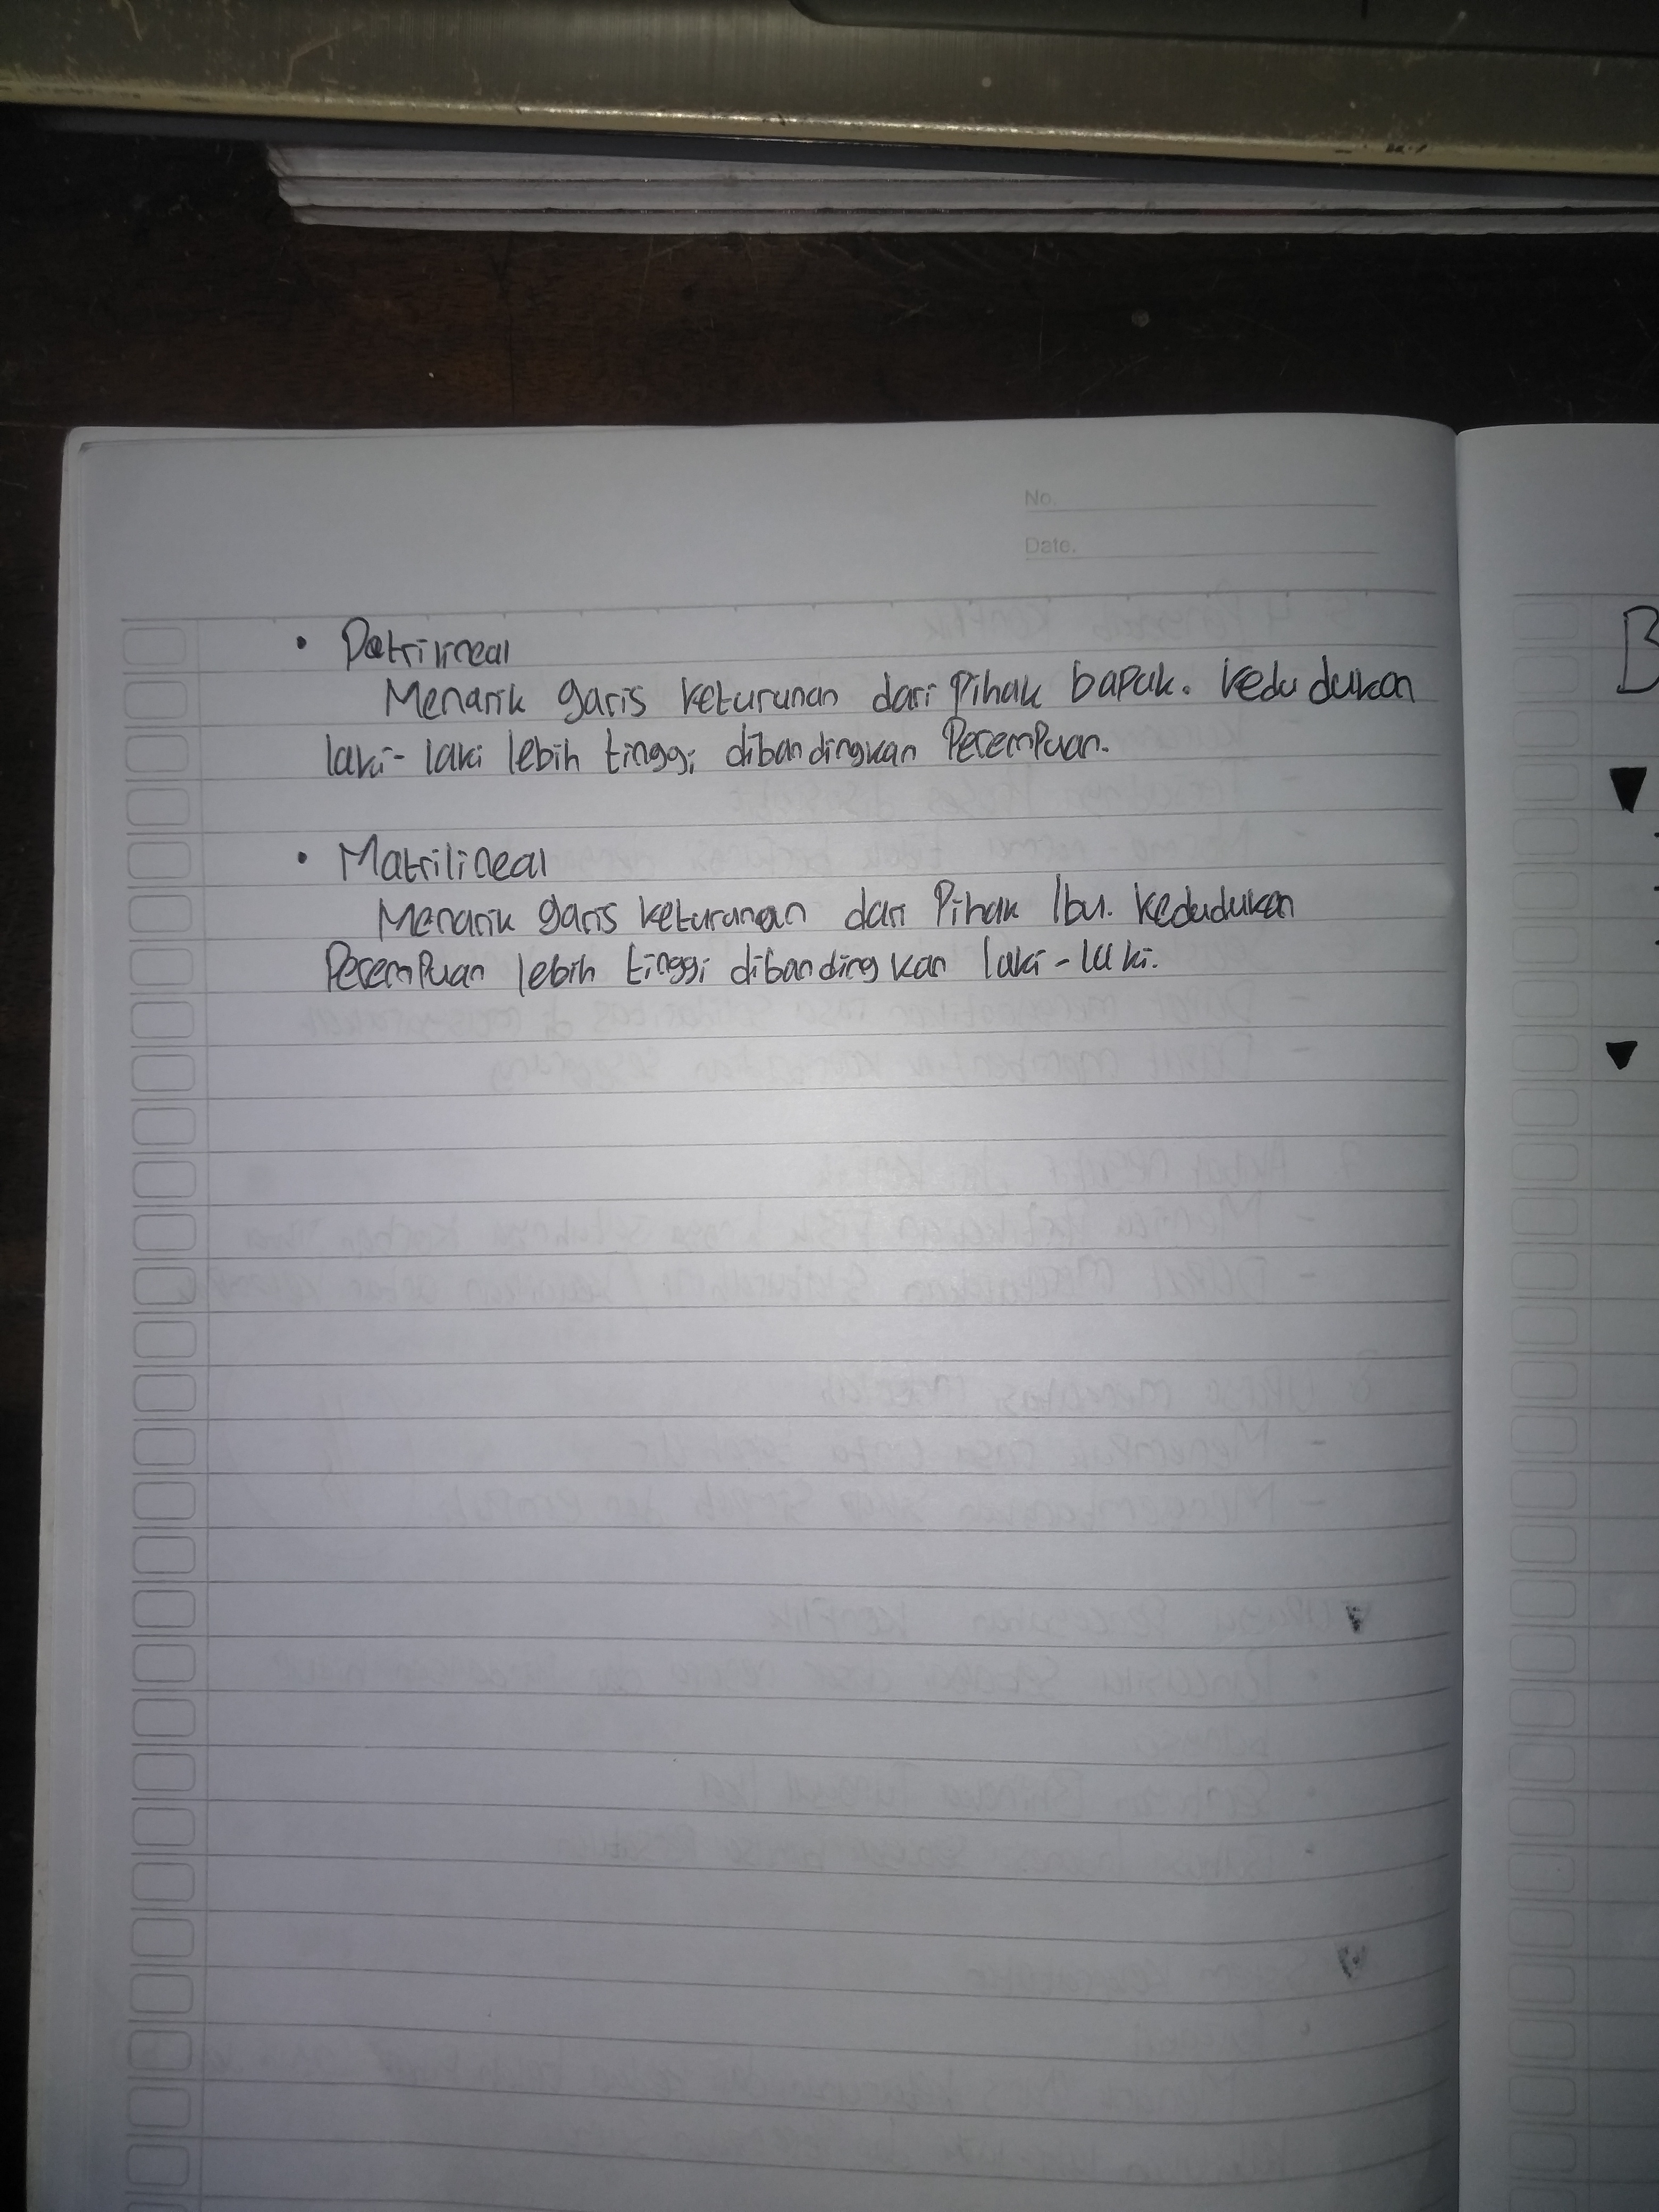 No.
Date.
• Patrilineal
Menarik garis keturunan dari Pihak bapak. kedudukan
laki-laki lebih tinggi dibandingkan Perempuan.
• Matrilineal
Menarik garis keturunan dari Pihak Ibu. kedudukan
Perempuan lebih tinggi dibandingkan laki-laki.
B